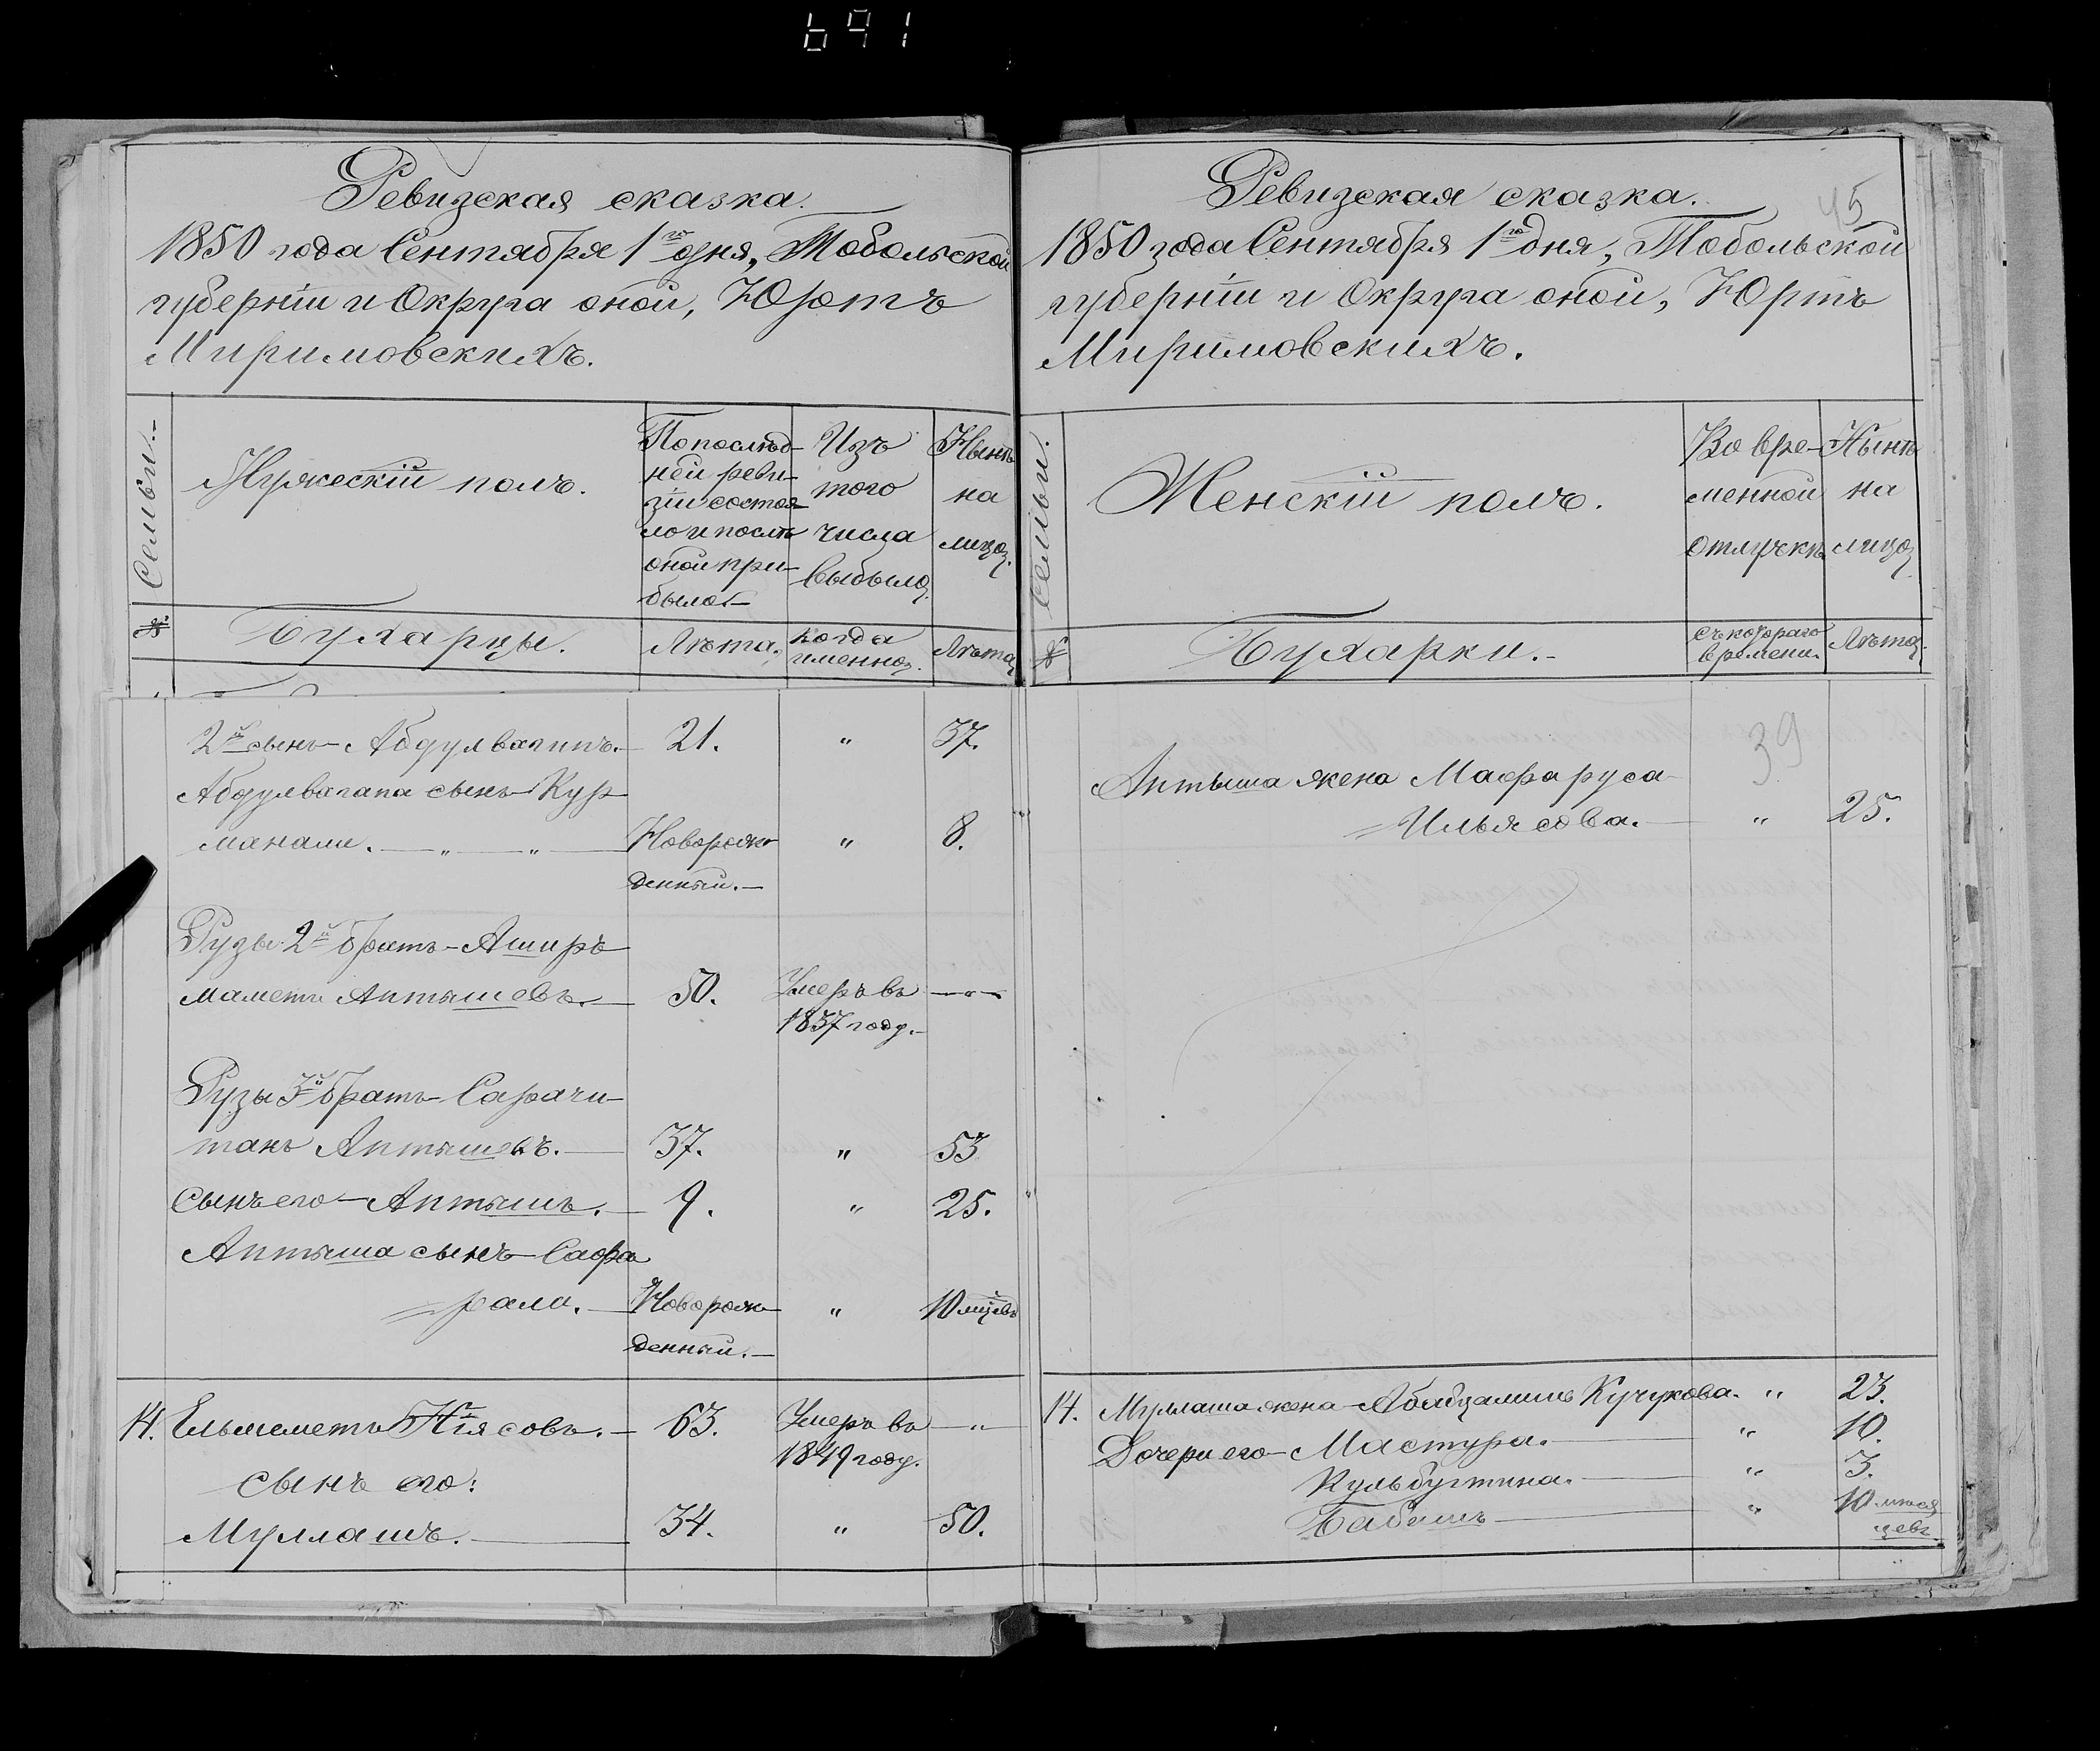 641
Ревизская сказка.
1850 года Сентября 1го дня, Тобольской
губернїи и Округа оной, Юртъ
Миримовскихъ.
Семьи.
Мужескїй полъ.
По послѣд-
ней реви-
зїи состоя-
ло и послѣ
оной при-
было
Изъ
того
числа
выбыло
Нынѣ
на
лицо
№
Бухарцы.
Лѣта.
когда
именно.
Лѣта
2й сынъ Абдулвагапъ. 21. " 37.
Абдулвагапа сынъ Кур
манали. " " Новорож " 8.
денный.
Рузы 2й братъ Аширъ
маметъ Аптышевъ. 50. Умеръ въ "
1837 году.
Рузы 3й братъ Сарачи
танъ Аптышевъ. 37. " 53
Сынъ его Аптышъ. 9. " 25.
Аптыша сынъ Сафа
рали. Новорож " 10 мцевъ
денный.
14. Ельмеметъ Нїясовъ. 63. Умеръ въ "
1849 году.
сынъ его:
Муллашъ. 34. " 50.
45
Ревизская сказка.
1850 года Сентября 1го дня, Тобольской
губернїи и Округа оной, Юртъ
Миримовскихъ.
Семьи.
Женскїй полъ.
Во вре-
менной
отлучкѣ
Нынѣ
на
лицо
№
Бухарки.
съ котораго
времени.
Лѣта
39
Аптыша жена Мафаруса
Ильясова. " 25.
14. Муллаша жена Кучукова. " 23.
Дочери его Мастура. " 10.
Кульбустина. " 3.
Бабишъ " 10 мѣся
цевъ.